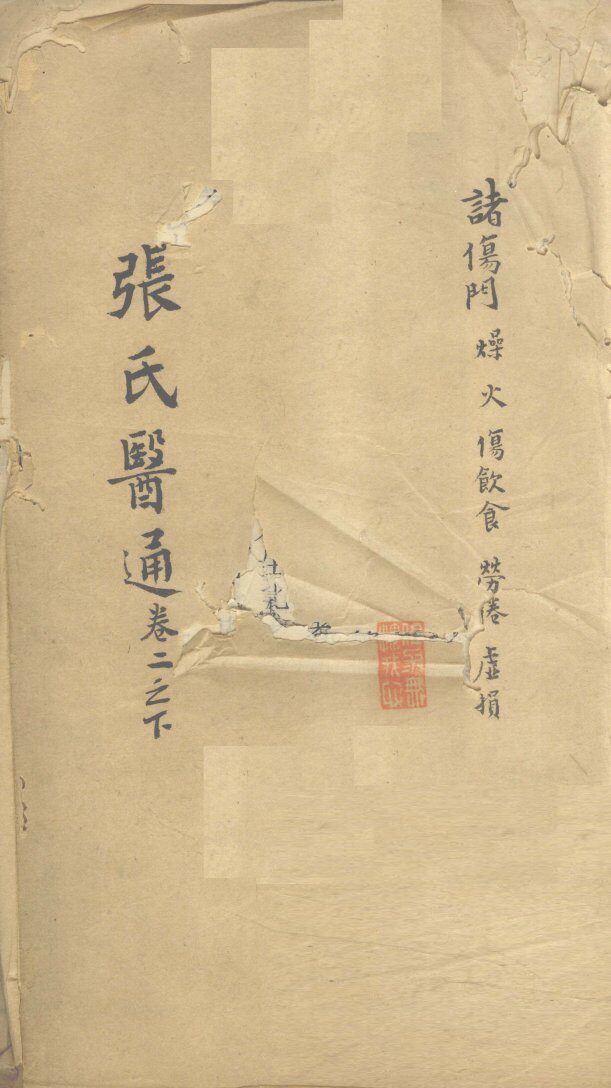 諸傷門 燥 火 傷飲食 勞倦 虛損
張氏醫通 卷二之下